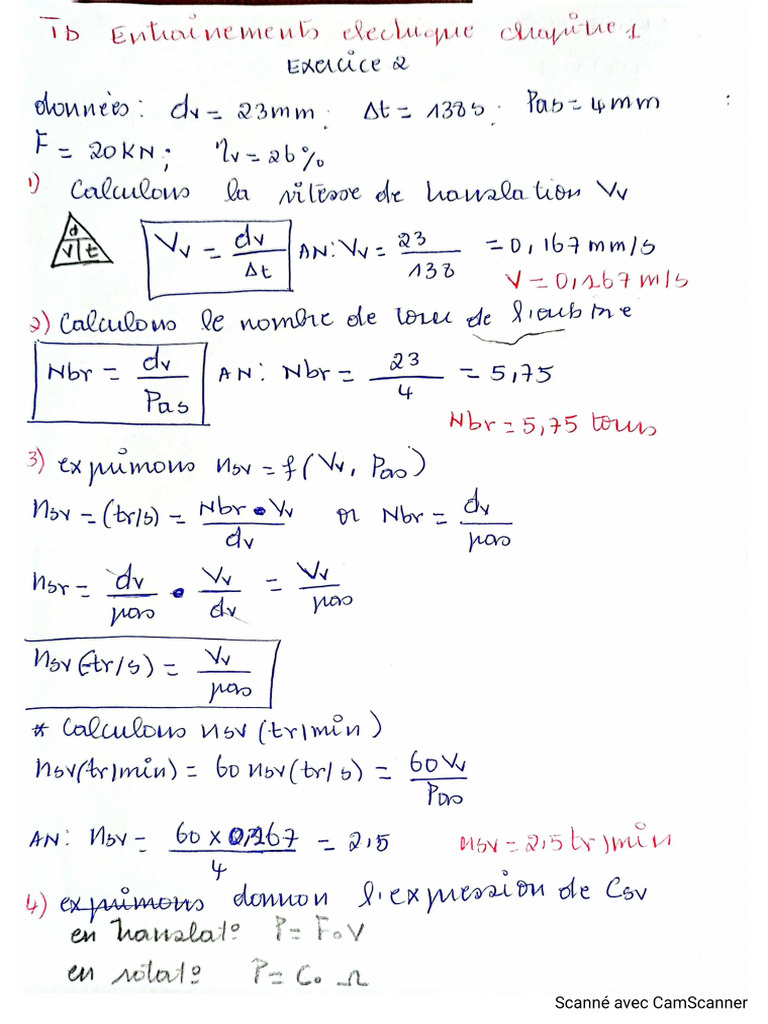 TD Entraînements electrique chapitre 1
Exercice 2
données : dv = 23mm . Δt = 138s . Pas = 4mm :
F = 20KN ; ηv = 26%
1) Calculons la vitesse de translation Vv
d
V t
Vv = dv / Δt AN: Vv = 23 / 138 = 0,167 mm/s
V = 0,167 m/s
2) Calculons le nombre de tour de
Nbr = dv / Pas AN: Nbr = 23 / 4 = 5,75
Nbr = 5,75 tours
3) exprimons nsv = f(Vv, Pas)
nsv = (tr/s) = Nbr • Vv / dv or Nbr = dv / pas
nsv = dv / pas • Vv / dv = Vv / pas
nsv (tr/s) = Vv / pas
* Calculons nsv (tr/min)
nsv(tr/min) = 60 nsv(tr/s) = 60Vv / Pas
AN: nsv = 60 x 0,167 / 4 = 2,5 nsv = 2,5 tr/min
4) exprimons donnon l'expression de Csv
en translat° P = F • V
en rotat° P = C • Ω
Scanné avec CamScanner